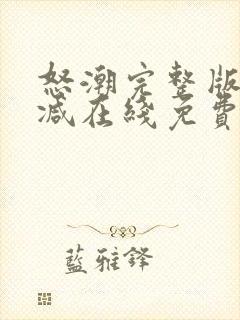 怒潮完整版
减在綫免費
藍雅鋒